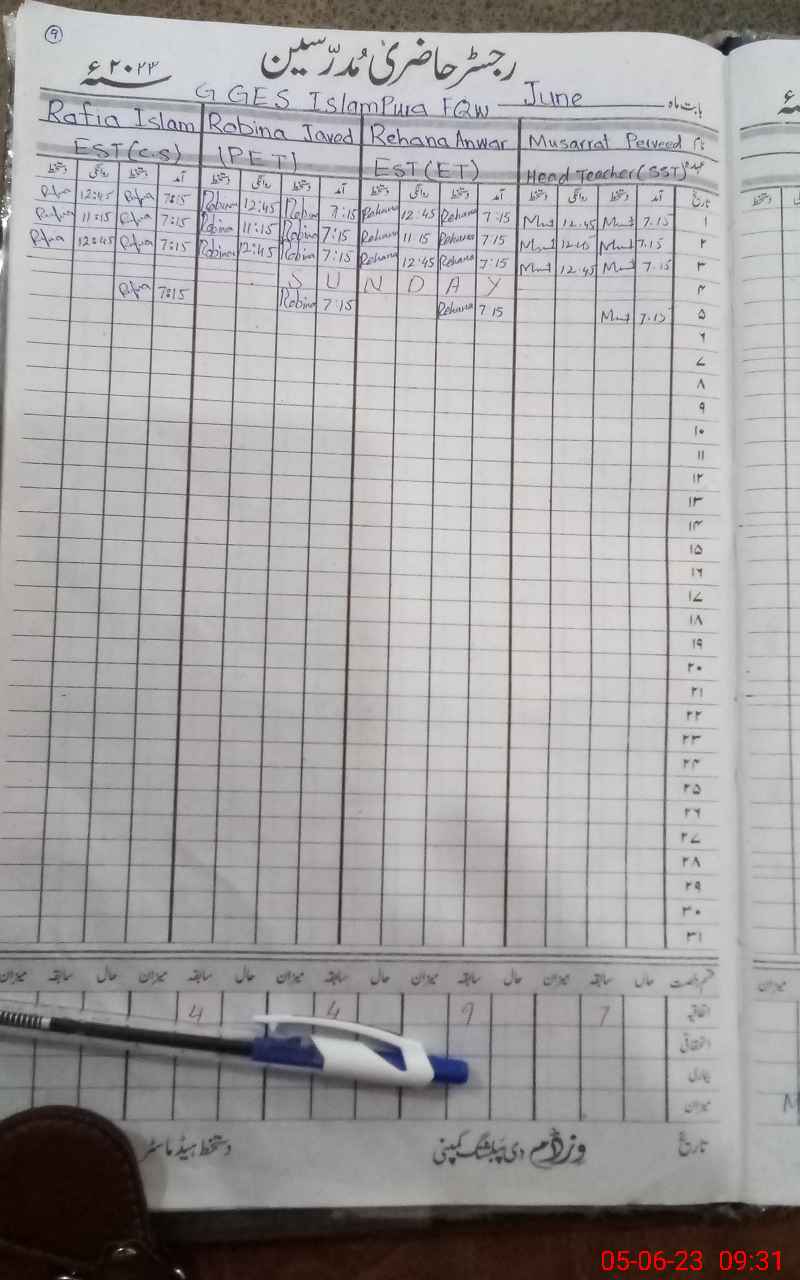 ۹
رجسٹر حاضریٔ مُدرّسین
۲۰۲۳ ء
GGES IslamPura FQW June بابت ماہ
Rafia Islam Robina Javed Rehana Anwar Musarrat Perveed نام
EST(C.S) (PET) EST(ET) Head Teacher(SST) عہدہ
دستخط روانگی دستخط آمد دستخط روانگی دستخط آمد دستخط روانگی دستخط آمد دستخط روانگی دستخط آمد تاریخ
Rafia 12:45 Rafia 7:15 Robina 12:45 Robina 7:15 Rehana 12:45 Rehana 7:15 12.45 7.15 ۱
Rafia 11:15 Rafia 7:15 Robina 11:15 Robina 7:15 Rehana 11 15 Rehana 7 15 7.15 ۲
Rafia 12:45 Rafia 7:15 Robina 12:45 Robina 7:15 Rehana 12:45 Rehana 7:15 12.45 7.15 ۳
S U N D A Y ۴
Rafia 7:15 Robina 7:15 Rehana 7 15 7.15 ۵
۶
۷
۸
۹
۱۰
۱۱
۱۲
۱۳
۱۴
۱۵
۱۶
۱۷
۱۸
۱۹
۲۰
۲۱
۲۲
۲۳
۲۴
۲۵
۲۶
۲۷
۲۸
۲۹
۳۰
۳۱
میزان سابقہ حال میزان سابقہ حال میزان سابقہ حال میزان سابقہ حال قسم رخصت
4 4 9 7 اتفاقیہ
استحقاقی
بیماری
میزان
دستخط ہیڈ ماسٹر وزڈم دی پبلشنگ کمپنی تاریخ
05-06-23 09:31